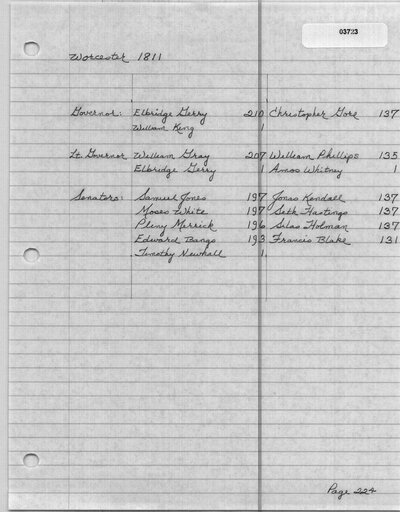 03723
Worcester 1811
Governor: Elbridge Gerry 210 Christopher Gore 137
William King 1
Lt. Governor William Gray 207 William Phillips 135
Elbridge Gerry 1 Amos Whitney 1
Senators: Samuel Jones 197 Jonas Kendall 137
Moses White 197 Seth Hastings 137
Pliny Merrick 196 Silas Holman 137
Edward Bangs 193 Francis Blake 131
Timothy Newhall 1
Page 224